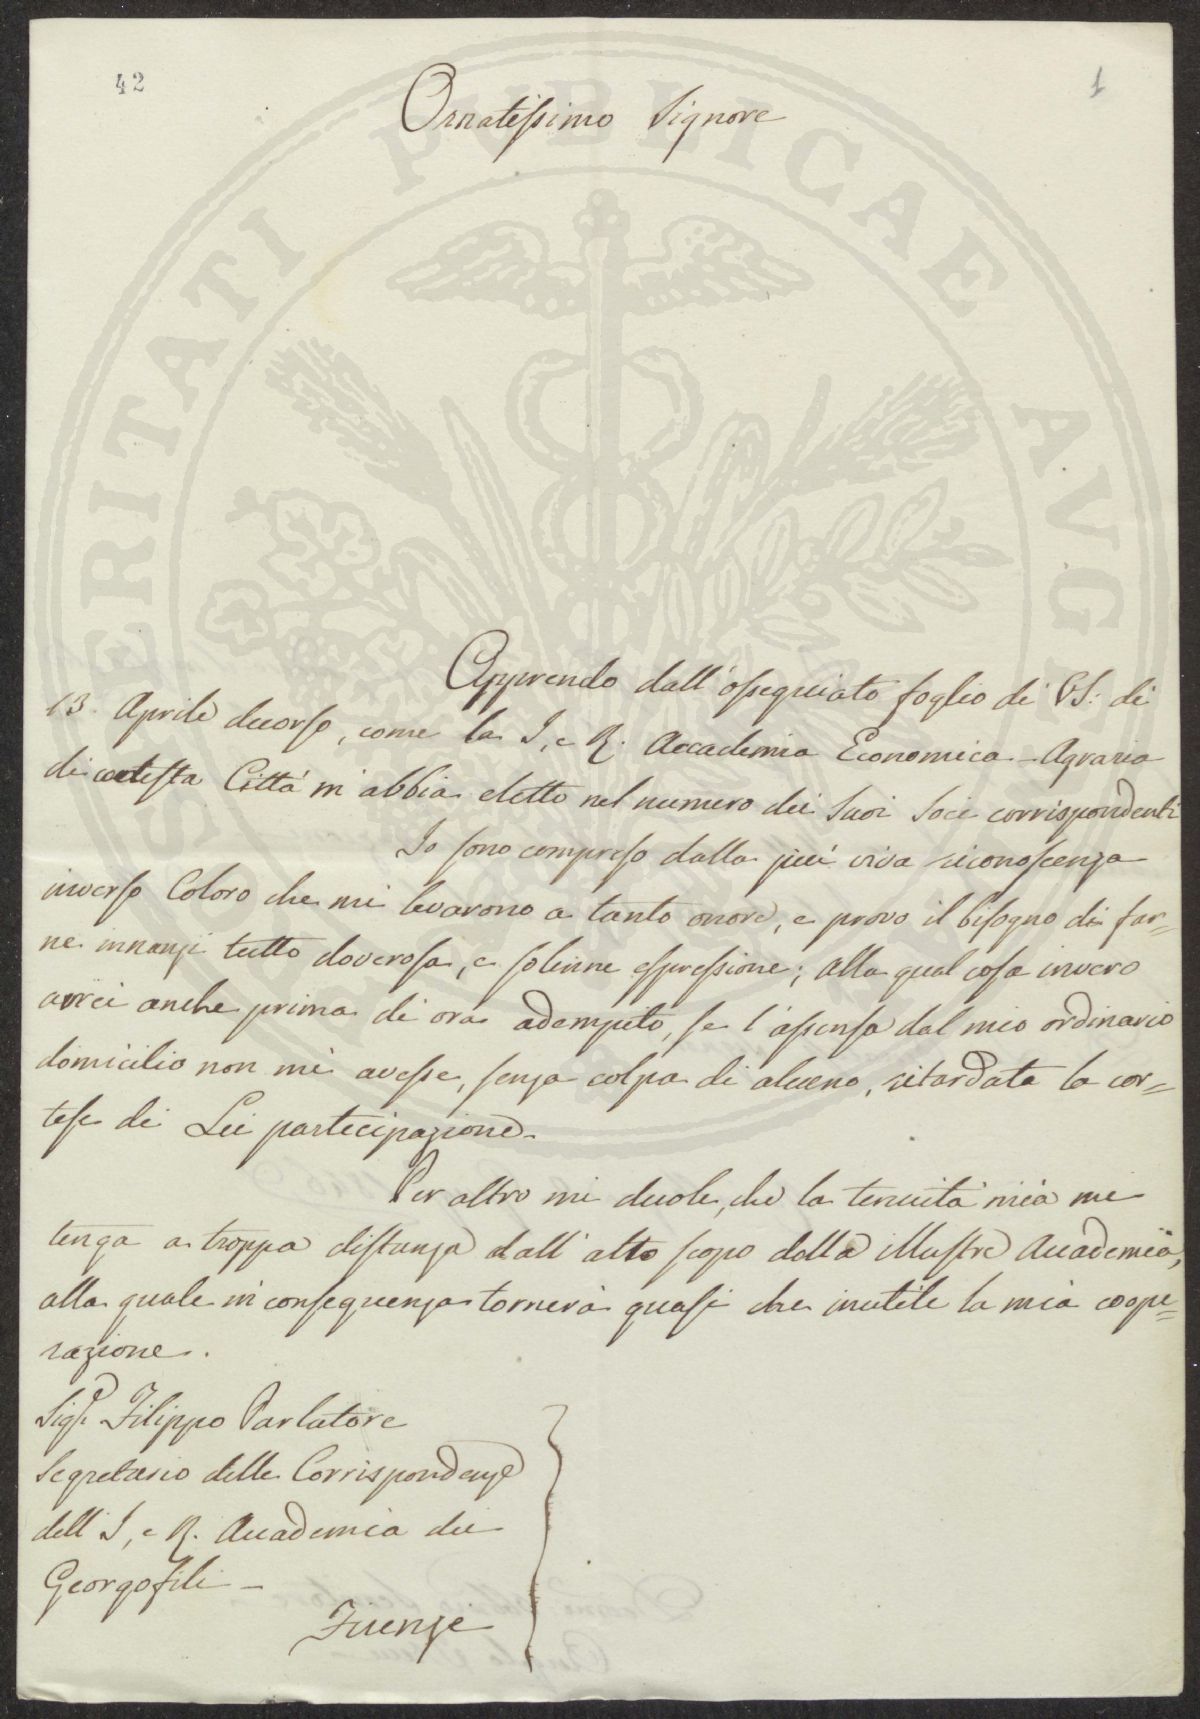 42
1
Ornatissimo Signore
Apprendo dall'ossequiato foglio di VS: di
13. Aprile decorso, come la I, e R. Accademia Economica-Agraria
di cotesta Città m'abbia eletto nel numero dei Suoi Soci corrispondenti
Io sono compreso dalla più viva riconoscenza
inverso Coloro che mi levarono a tanto onore, e provo il bisogno di far=
ne innanzi tutto doverosa, e solenne espressione; alla qual cosa invero
avrei anche prima di ora adempito, se l'assenza dal mio ordinario
domicilio non mi avesse, senza colpa di alcuno, ritardata la cor=
tese di Lei partecipazione.
Per altro mi duole, che la tenuità mia me
tenga a troppa distanza dall'alto scopo della illustre Accademia,
alla quale in conseguenza tornerà quasi che inutile la mia coope=
razione.
Sigr. Filippo Parlatore
Segretario delle Corrispondenze
dell'I, e R. Accademia dei
Georgofili -
Firenze
PROSPERITATI PUBLICAE AVGENDAE